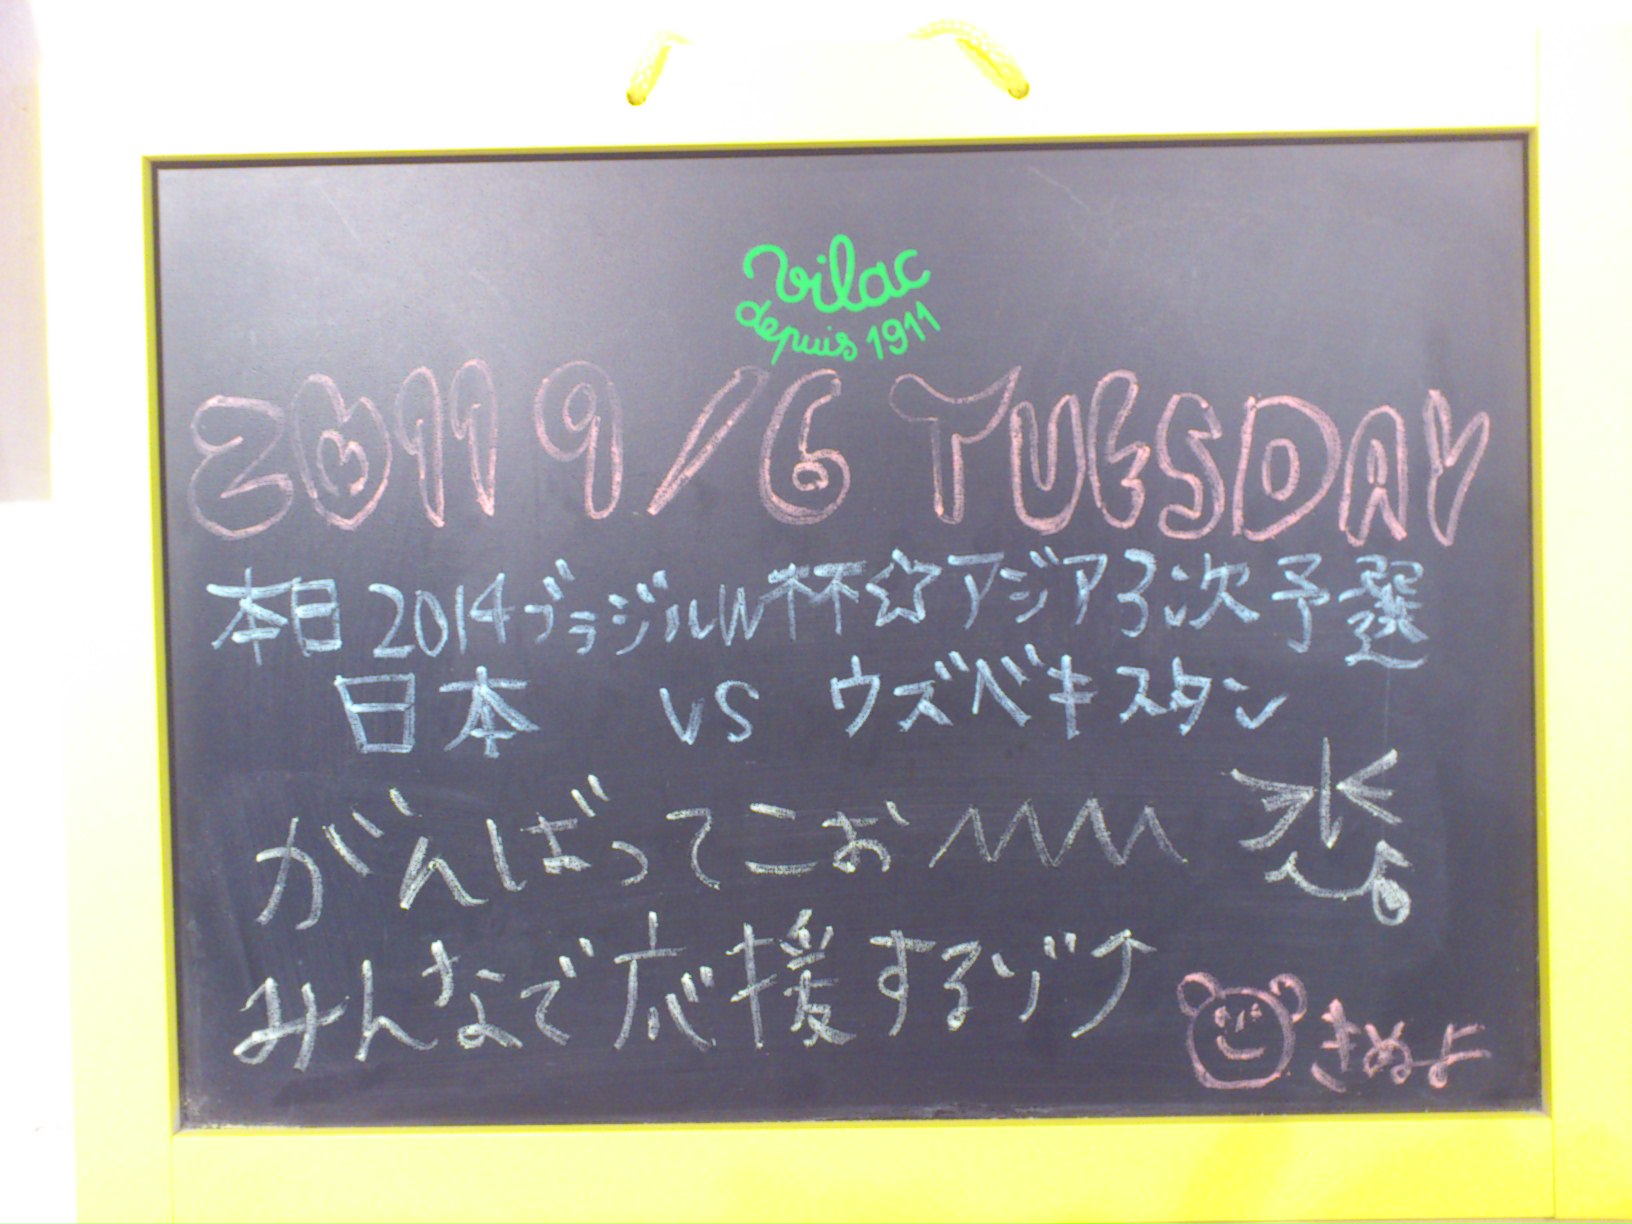 vilac
depuis 1911
2011 9/6 TUESDAY
本日2014ブラジルW杯☆アジア3次予選
日本 vs ウズベキスタン
がんばってこお
みんなで応援するゾ↑
きぬよ